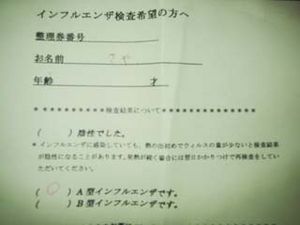 インフルエンザ検査希望の方へ
整理券番号
お名前
年齢 才
検査結果について
( )陰性でした。
*インフルエンザに感染していても、熱の出始めでウィルスの量が少ないと検査結果
が陰性になることがあります。発熱が続く場合には翌日かかりつけで再検査をしてい
ただいてください。
(○)A型インフルエンザです。
( )B型インフルエンザです。